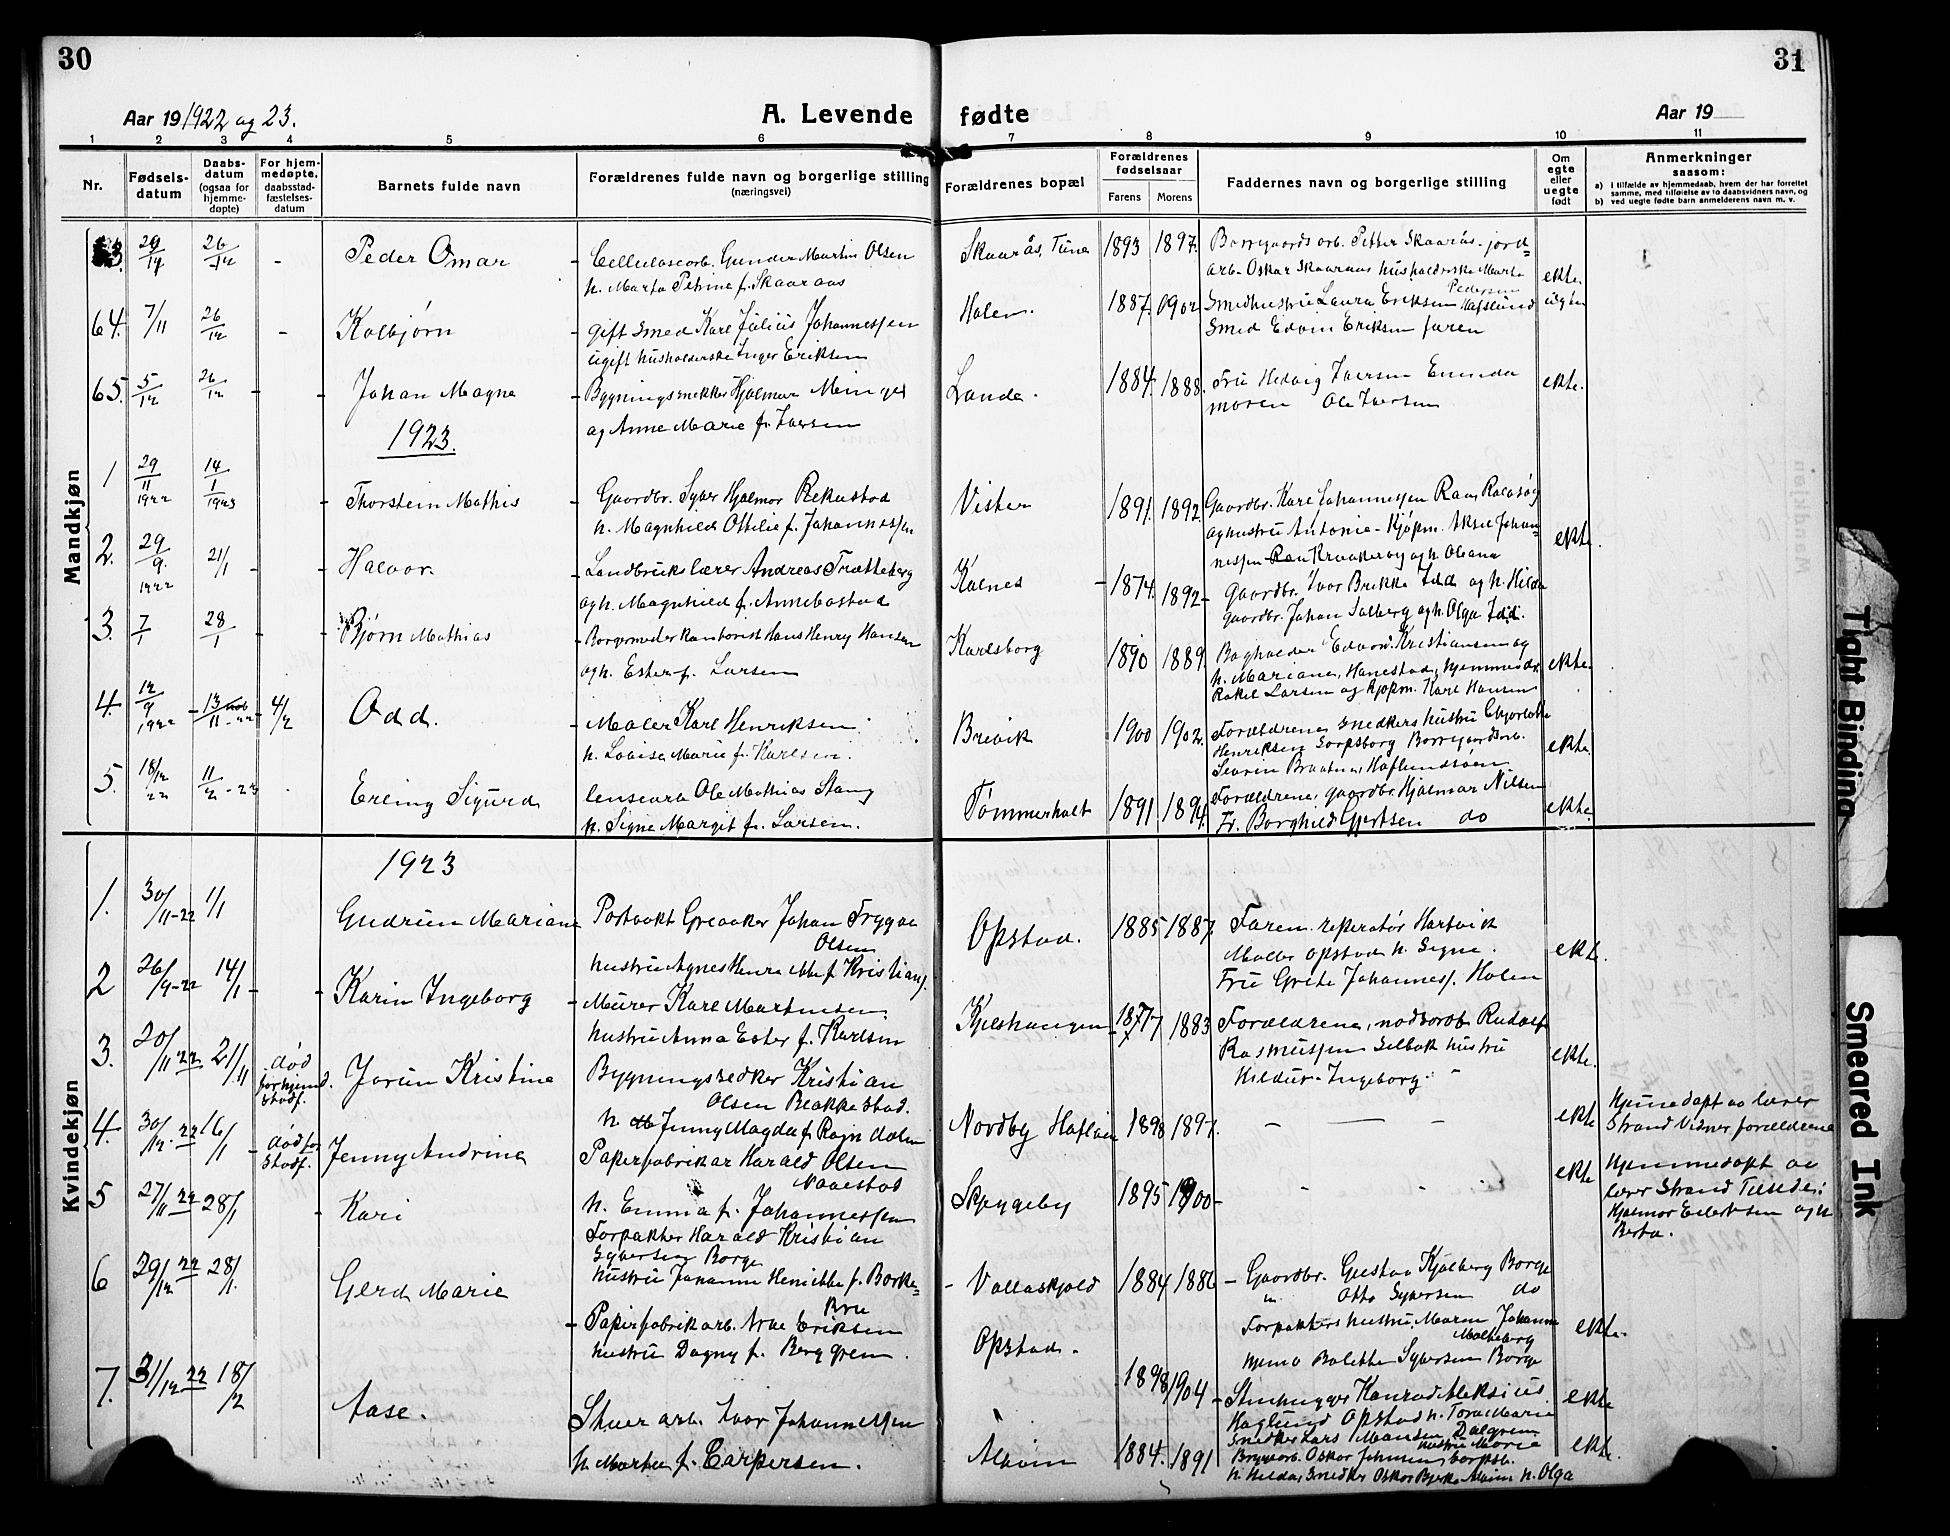 30
31
Aar 19 1922 og 23.
A. Levende fødte
Aar 19
1 2 3 4 5 6 7 8 9 10 11
Nr.
Fødsels-
datum
Daabs-
datum
(ogsaa for
hjemme-
døpte)
For hjem-
medøpte,
daabsstad-
fæstelses-
datum
Barnets fulde navn
Forældrenes fulde navn og borgerlige stilling
(næringsvei)
Forældrenes bopæl
Forældrenes
fødselsaar
Farens
Morens
Faddernes navn og borgerlige stilling
Om
egte
eller
uegte
født
Anmerkninger
saasom:
a) i tilfælde av hjemmedaab, hvem der har forrettet
samme, med tilføielse av to daabsvidners navn, og
b) ved uegte fødte barn anmelderens navn m. v.
Mandkjøn
26/12 - Peder Omar
Cellulosearb. Gunder Martin Olsen
h. Marta Petrine f. Skaaraas
Skaarås, Tune 1893 1897.
Borregaards arb. Petter Skaarås - jord-
arb. Oskar Skaaraas husholderske Marta
Pedersen
ekte.
64. 7/11 26/12 - Kolbjørn
gift Smed Karl Julius Johannessen
ugift husholderske Inger Eriksen
Holen. 1887. 1902
Smedhustru Laura Eriksen Hafslund
Smed Edvin Eriksen faren
uegte
65. 5/12 26/12 - Johan Magne
Bygningsnekker Hjalmar Minge
og Anne Marie f. Iversen
Lande. 1884. 1888.
Fru Hedvig Iversen
moren Ole Iversen
ekte.
1923.
1 29/11 1922 14/1 1923 - Thorstein Mathis
Gaardbr. Syver Hjalmar Rekustad
h. Magnhild Ottilie f. Johannessen
Visten 1891. 1892.
Gaardbr. Karl Johannessen Raa
og hustru Antonie - Kjøpm. Johan-
nessen og h. Oleana
ekte.
2. 29/9. 1922 21/1 - Halvor
Landbrukslærer Andreas Trætteberg
og h. Magnhild f. Annebostad
Kalnes - 1874. 1892 -
Gaardbr. Ivar Brekke Idd og h. Hilda
Gaardbr. Johan Solberg og h. Olga Idd.
3. 7/1 28/1 - Bjørn Mathias
Hans Henry Hansen
og h. Ester f. Larsen
Karlsborg 1890 1889.
Bogholder Edvard Kristiansen og
h. Mariane, Hanestad, hjemmev.
Rakel Larsen og kjøpm. Karl Hansen
ekte.
4. 12/9 1922 - 13/11 - 22 - 4/2 Odd.
- Maler Karl Henriksen.
h. Lovise Marie f. Karlsen.
Brevik 1900 1902.
Forældrene, snedkers hustru Charlotte
Henriksen Sarpsborg Borregaardsarb.
Severin Braaten, Haflundsøen
ekte.
5. 18/12 22 11/2 - 23 Erling Sigurd
Ole Mathias Stang
h. Signe Margit f. Larsen.
Tømmerholt 1891 1894.
Forældrene, gaardbr. Hjalmar Nilsen
Fr. Borghild Gjertsen do
ekte.
Kvindekjøn
1923
1. 30/11-22 1/1 Gudrun Mariane
Postvakt Greaaker Johan Trygve
Olsen
hustru Agnes Henriette f. Kristians.
Opstad. 1885 1887.
Faren. reperatør Hartvik
Møller Opstad h. Signe.
Fru Grete Johanness. Holen
ekte.
2 26/9-22 14/1 - Karin Ingeborg
- Murer Karl Martinsen
hustru Anna Ester f. Karlsen
Kjelshaugen 1877 1883
Forældrene, Rudolf
Rasmussen Selbak hustru
Hildur - Ingeborg. -
ekte.
3. 20/11 22 21/11 død
før hjemd.
stadf. Jorun Kristine
Bygningsnedker Kristian
Olsen Blakkestad.
h. Jenny Magda f. Rogndalen
Nordby Hafslun 1898 1897.
ekte
Hjemedøpt av lærer
Strand Vidner forældrene
4. 30/12. 22 16/1 - død før
stadf. Jenny Andrine
Papirfabrikar Harald Olsen
Navestad
h. Emma f. Johannessen
Skyggeby 1895 1900 -
ekte
Hjemmedøpt av
lærer Strand Tilstede:
Hjalmar Eilertsen og h
Berta.
5 27/11 22 28/1 Kari
Forpakter Harald Kristian
Syversen Borge
hustru Johanne Henriette f. Borke=
Bru
- Vallaskjold 1884 1886
- Gaardbr. Gustav Kjølberg Borge
" Otto Syversen do
Forpakters hustru Maren Johanne
Molteberg
Hjema Bolette Syversen Borge
ekte.
6 29/12 22 28/1. Gerd Marie
- Papirfabrikarb. Arne Eriksen
hustru Dagny f. Berggren.
Opstad. 1898 1904
- Stenhugger Konrad Aleksius
Haglund Opstad h. Tora Marie
Snedker Lars Mansen Dalgren
hustru Marie
ekte
7. 31/12 22 18/2 Aase.
Skuer arb. Ivar Johannessen
h. Marta f. Carpersen.
Alvim 1884. 1891
Bryggearb. Oskar Johnsen Sarpsb.
h. Hilda, Snedker Oskar Bjerke Alvim h. Olga
ekte.
Tight Binding
Smeared Ink